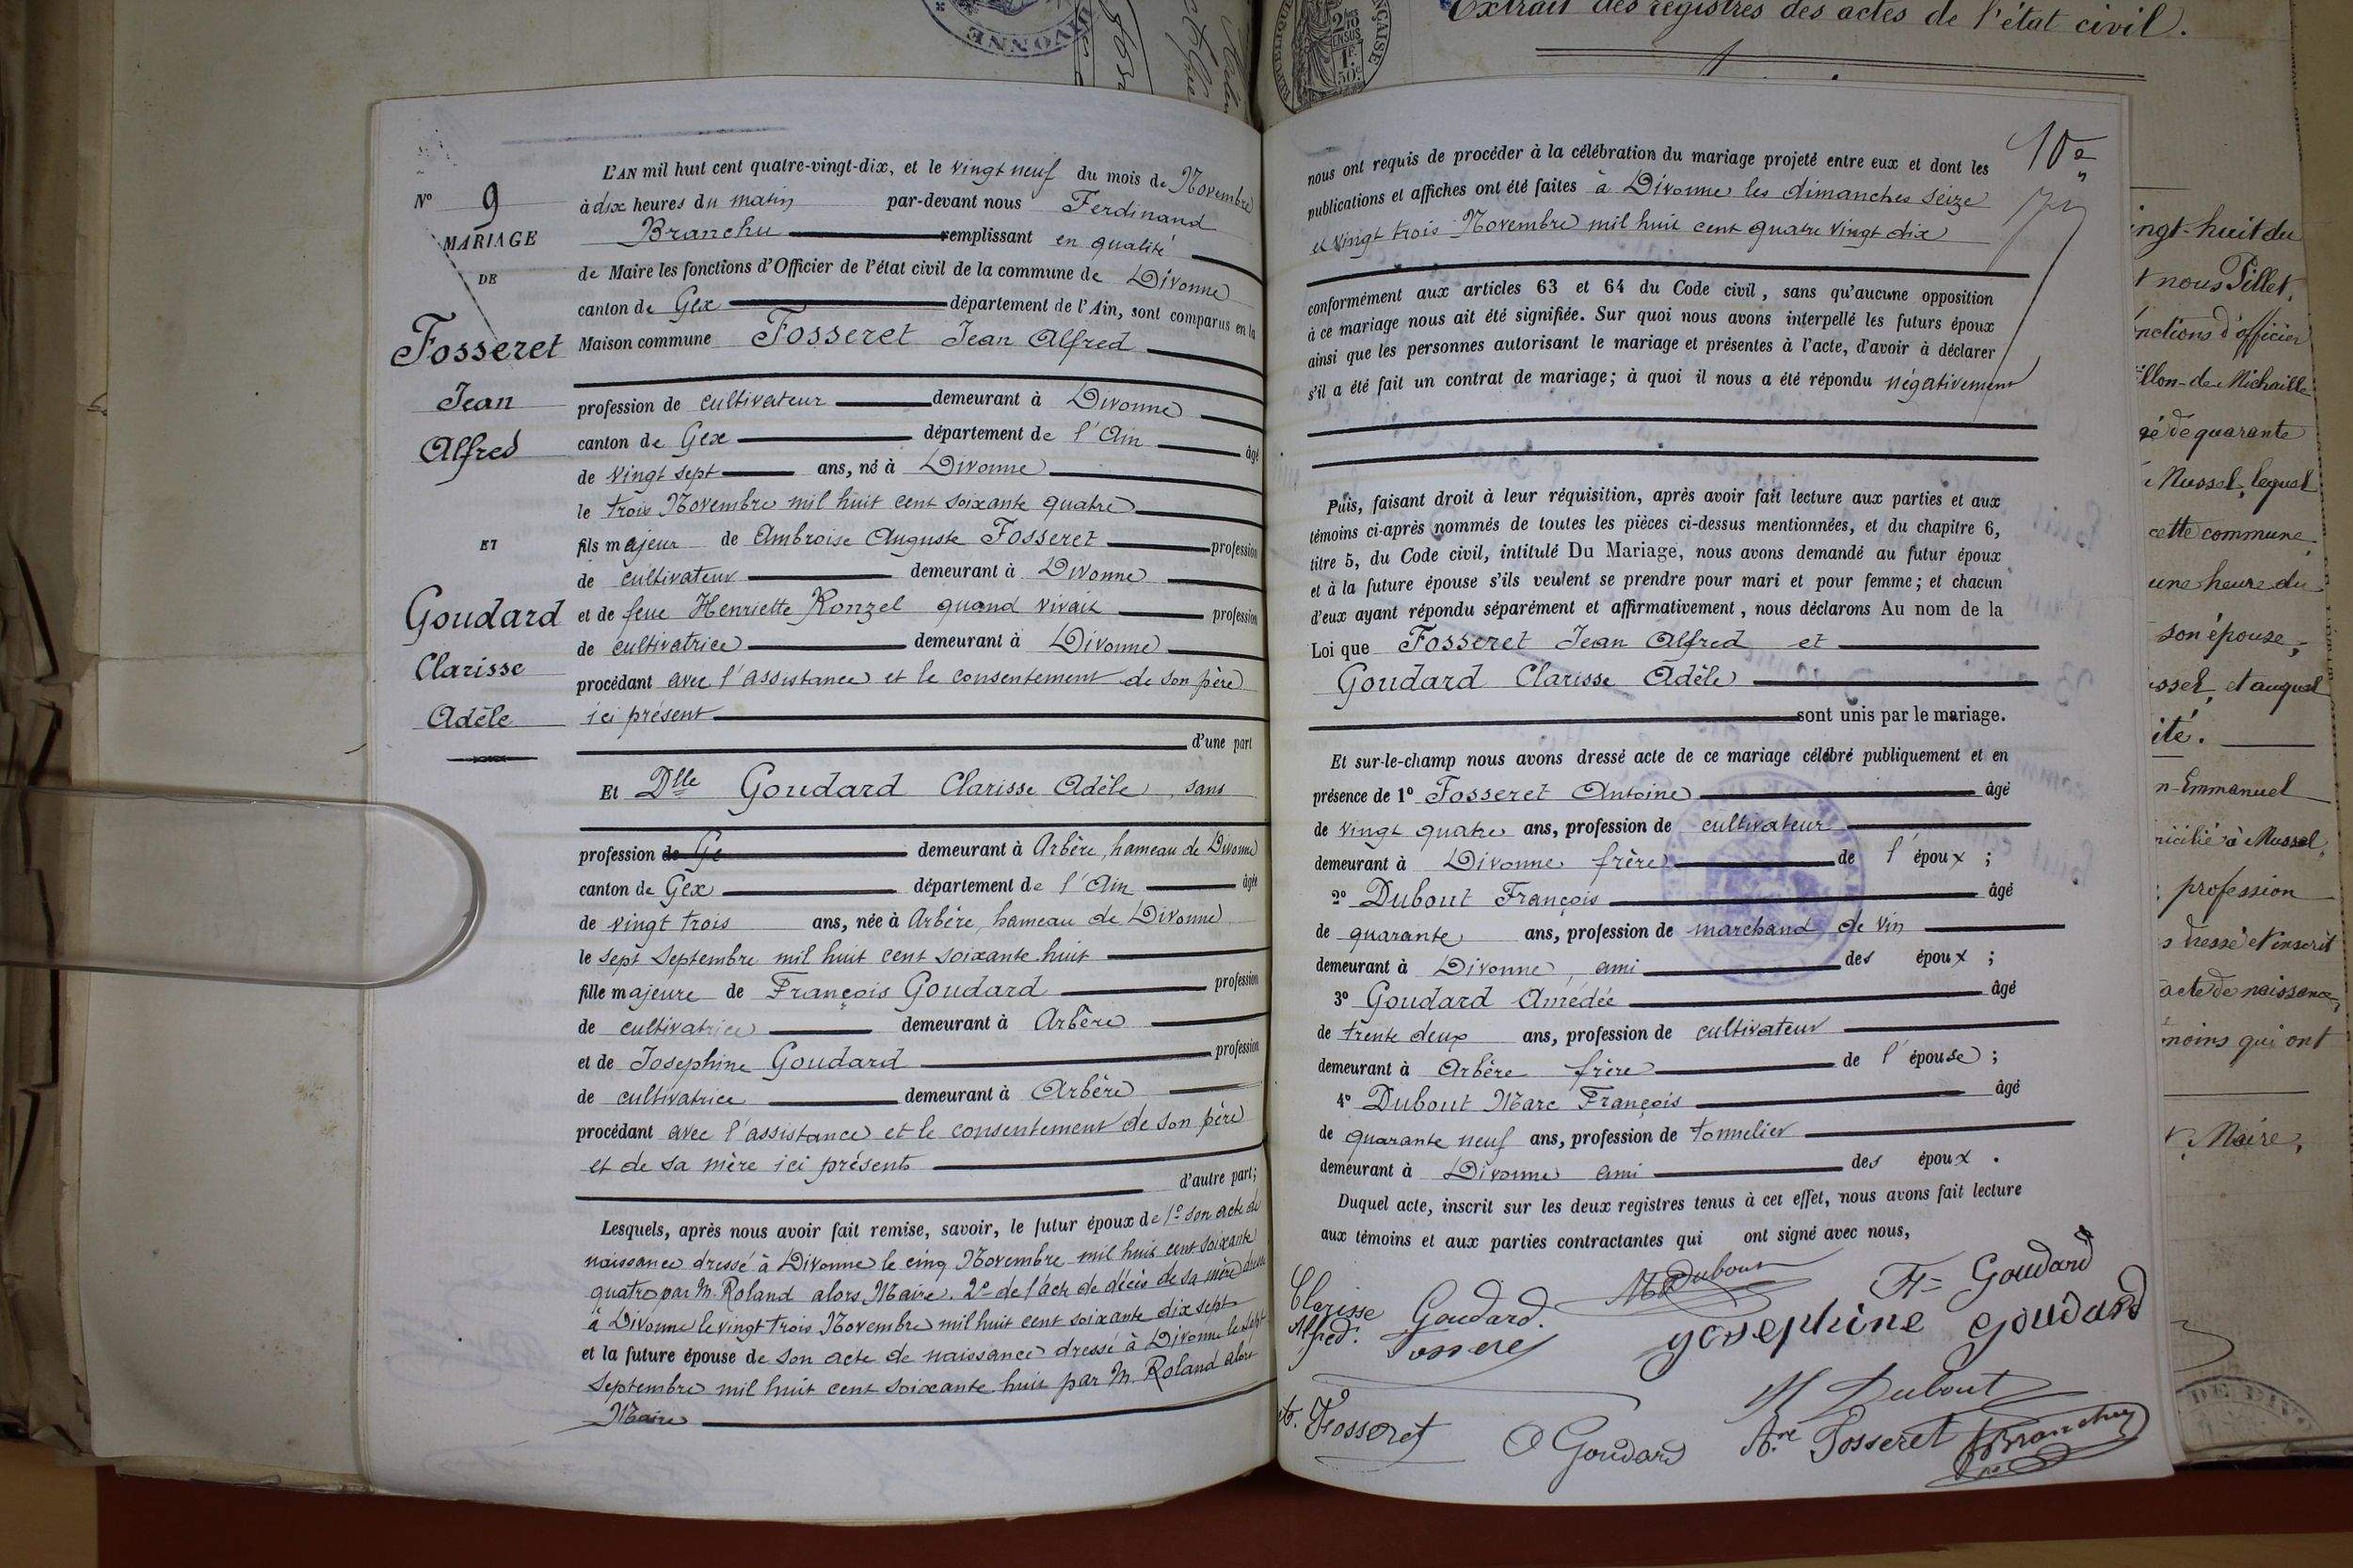 Extrait des registres des actes de l'état civil.
DIVONNE
N° 9
MARIAGE
DE
Fosseret
Jean
Alfred
ET
Goudard
Clarisse
Adèle
L'AN mil huit cent quatre-vingt-dix, et le vingt neuf du mois de Novembre
à dix heures du matin par-devant nous Ferdinand
Branchu remplissant en qualité
de Maire les fonctions d'Officier de l'état civil de la commune de Divonne
canton de Gex département de l'Ain, sont comparus en la
Maison commune Fosseret Jean Alfred
profession de cultivateur demeurant à Divonne
canton de Gex département de l'Ain âgé
de vingt sept ans, né à Divonne
le trois Novembre mil huit cent soixante quatre
fils majeur de Ambroise Auguste Fosseret profession
de cultivateur demeurant à Divonne
et de feue Henriette Ronzel quand vivait profession
de cultivatrice demeurant à Divonne
procédant avec l'assistance et le consentement de son père
ici présent
d'une part
Et Dlle Goudard Clarisse Adèle, sans
profession de Ge demeurant à Arbère, hameau de Divonne
canton de Gex département de l'Ain âgée
de vingt trois ans, née à Arbère, hameau de Divonne
le sept Septembre mil huit cent soixante huit
fille majeure de François Goudard profession
de cultivatrice demeurant à Arbère
et de Josephine Goudard profession
de cultivatrice demeurant à Arbère
procédant avec l'assistance et le consentement de son père
et de sa mère ici présents
d'autre part;
Lesquels, après nous avoir fait remise, savoir, le futur époux de 1° son acte de
naissance dressé à Divonne le cinq Novembre mil huit cent soixante
quatre par M. Roland alors Maire. 2° de l'acte de décès de sa mère dressé
à Divonne le vingt trois Novembre mil huit cent soixante dix sept
et la future épouse de son acte de naissance dressé à Divonne le sept
Septembre mil huit cent soixante huit par M. Roland alors
Maire
nous ont requis de procéder à la célébration du mariage projeté entre eux et dont les
publications et affiches ont été faites à Divonne les dimanches seize
et vingt trois Novembre mil huit cent quatre vingt dix
conformément aux articles 63 et 64 du Code civil, sans qu'aucune opposition
à ce mariage nous ait été signifiée. Sur quoi nous avons interpellé les futurs époux
ainsi que les personnes autorisant le mariage et présentes à l'acte, d'avoir à déclarer
s'il a été fait un contrat de mariage; à quoi il nous a été répondu négativement
Puis, faisant droit à leur réquisition, après avoir fait lecture aux parties et aux
témoins ci-après nommés de toutes les pièces ci-dessus mentionnées, et du chapitre 6,
titre 5, du Code civil, intitulé Du Mariage, nous avons demandé au futur époux
et à la future épouse s'ils veulent se prendre pour mari et pour femme; et chacun
d'eux ayant répondu séparément et affirmativement, nous déclarons Au nom de la
Loi que Fosseret Jean Alfred et
Goudard Clarisse Adèle
sont unis par le mariage.
Et sur-le-champ nous avons dressé acte de ce mariage célébré publiquement et en
présence de 1° Fosseret Antoine âgé
de vingt quatre ans, profession de cultivateur
demeurant à Divonne frère de l'époux;
2° Dubout François âgé
de quarante ans, profession de marchand de vin
demeurant à Divonne, ami des époux;
3° Goudard Amédée âgé
de trente deux ans, profession de cultivateur
demeurant à Arbère frère de l'épouse;
4° Dubout Marc François âgé
de quarante neuf ans, profession de tonnelier
demeurant à Divonne ami des époux.
Duquel acte, inscrit sur les deux registres tenus à cet effet, nous avons fait lecture
aux témoins et aux parties contractantes qui ont signé avec nous,
Clarisse Goudard. M Dubout Fs Goudard
Alfred Fosseret josephine goudard
M Dubout
At. Fosseret A Goudard Ane Fosseret F Branchu
10e
ingt-huit du
t nous Pillet,
nctions d'officier
llon-de-Michaille
gé de quarante
Mussel, lequel
cette commune
une heure du
son épouse,
ssel, et auquel
ité.
n-Emmanuel
micilié à Mussel,
profession
s dressé et inscrit
acte de naissance,
moins qui ont
Maire,